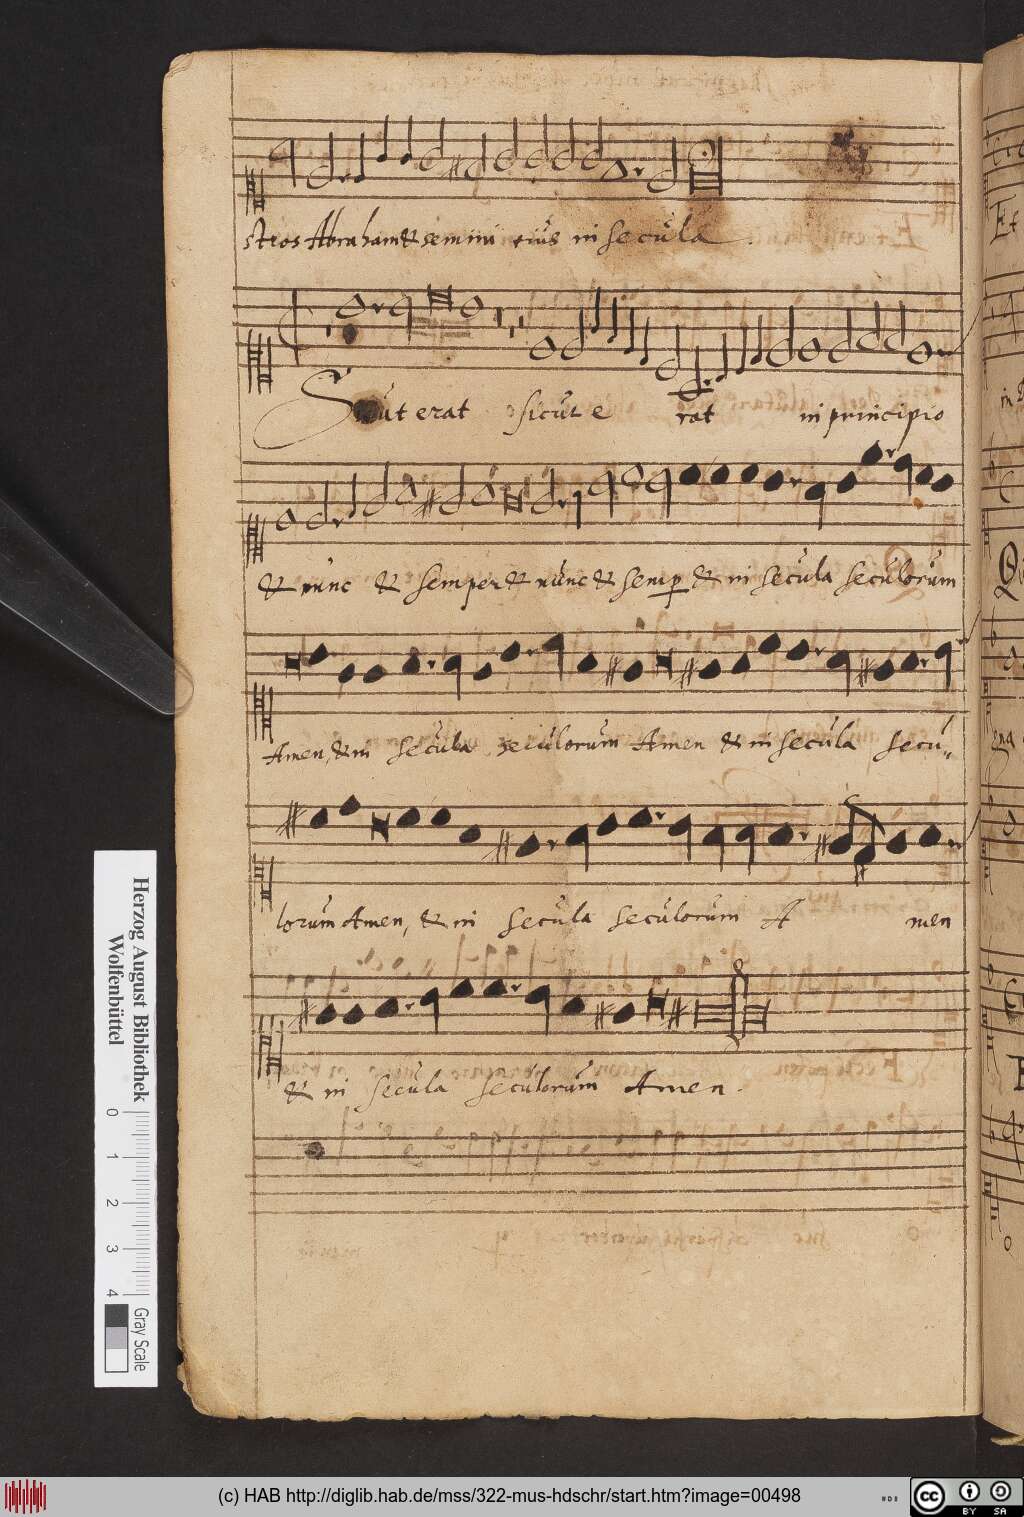 stros Abraham & semini eiùs in secùla
Sicùt erat sicùt e rat in principio
& nùnc & semper & nùnc & semp & in secùla secùlorùm
Amen, & in secùla secùlorùm Amen & in secùla secù„
lorùm Amen, & in secùla secùlorùm A men
& in secùla secùlorùm Amen.
Herzog August Bibliothek
Wolfenbüttel
0 1 2 3 4 Gray Scale
(c) HAB http://diglib.hab.de/mss/322-mus-hdschr/start.htm?image=00498
cc BY SA